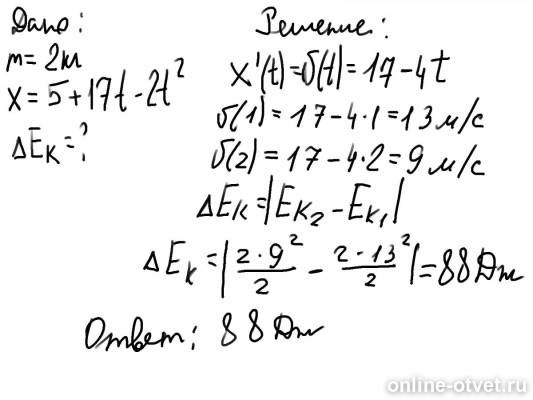 Дано:
m = 2кг
x = 5 + 17t - 2t²
ΔEк = ?
Решение:
x'(t) = υ(t) = 17 - 4t
υ(1) = 17 - 4·1 = 13 м/с
υ(2) = 17 - 4·2 = 9 м/с
ΔEк = |Eк₂ - Eк₁|
ΔEк = |2·9²/2 - 2·13²/2| = 88Дж
Ответ: 88Дж
online-otvet.ru